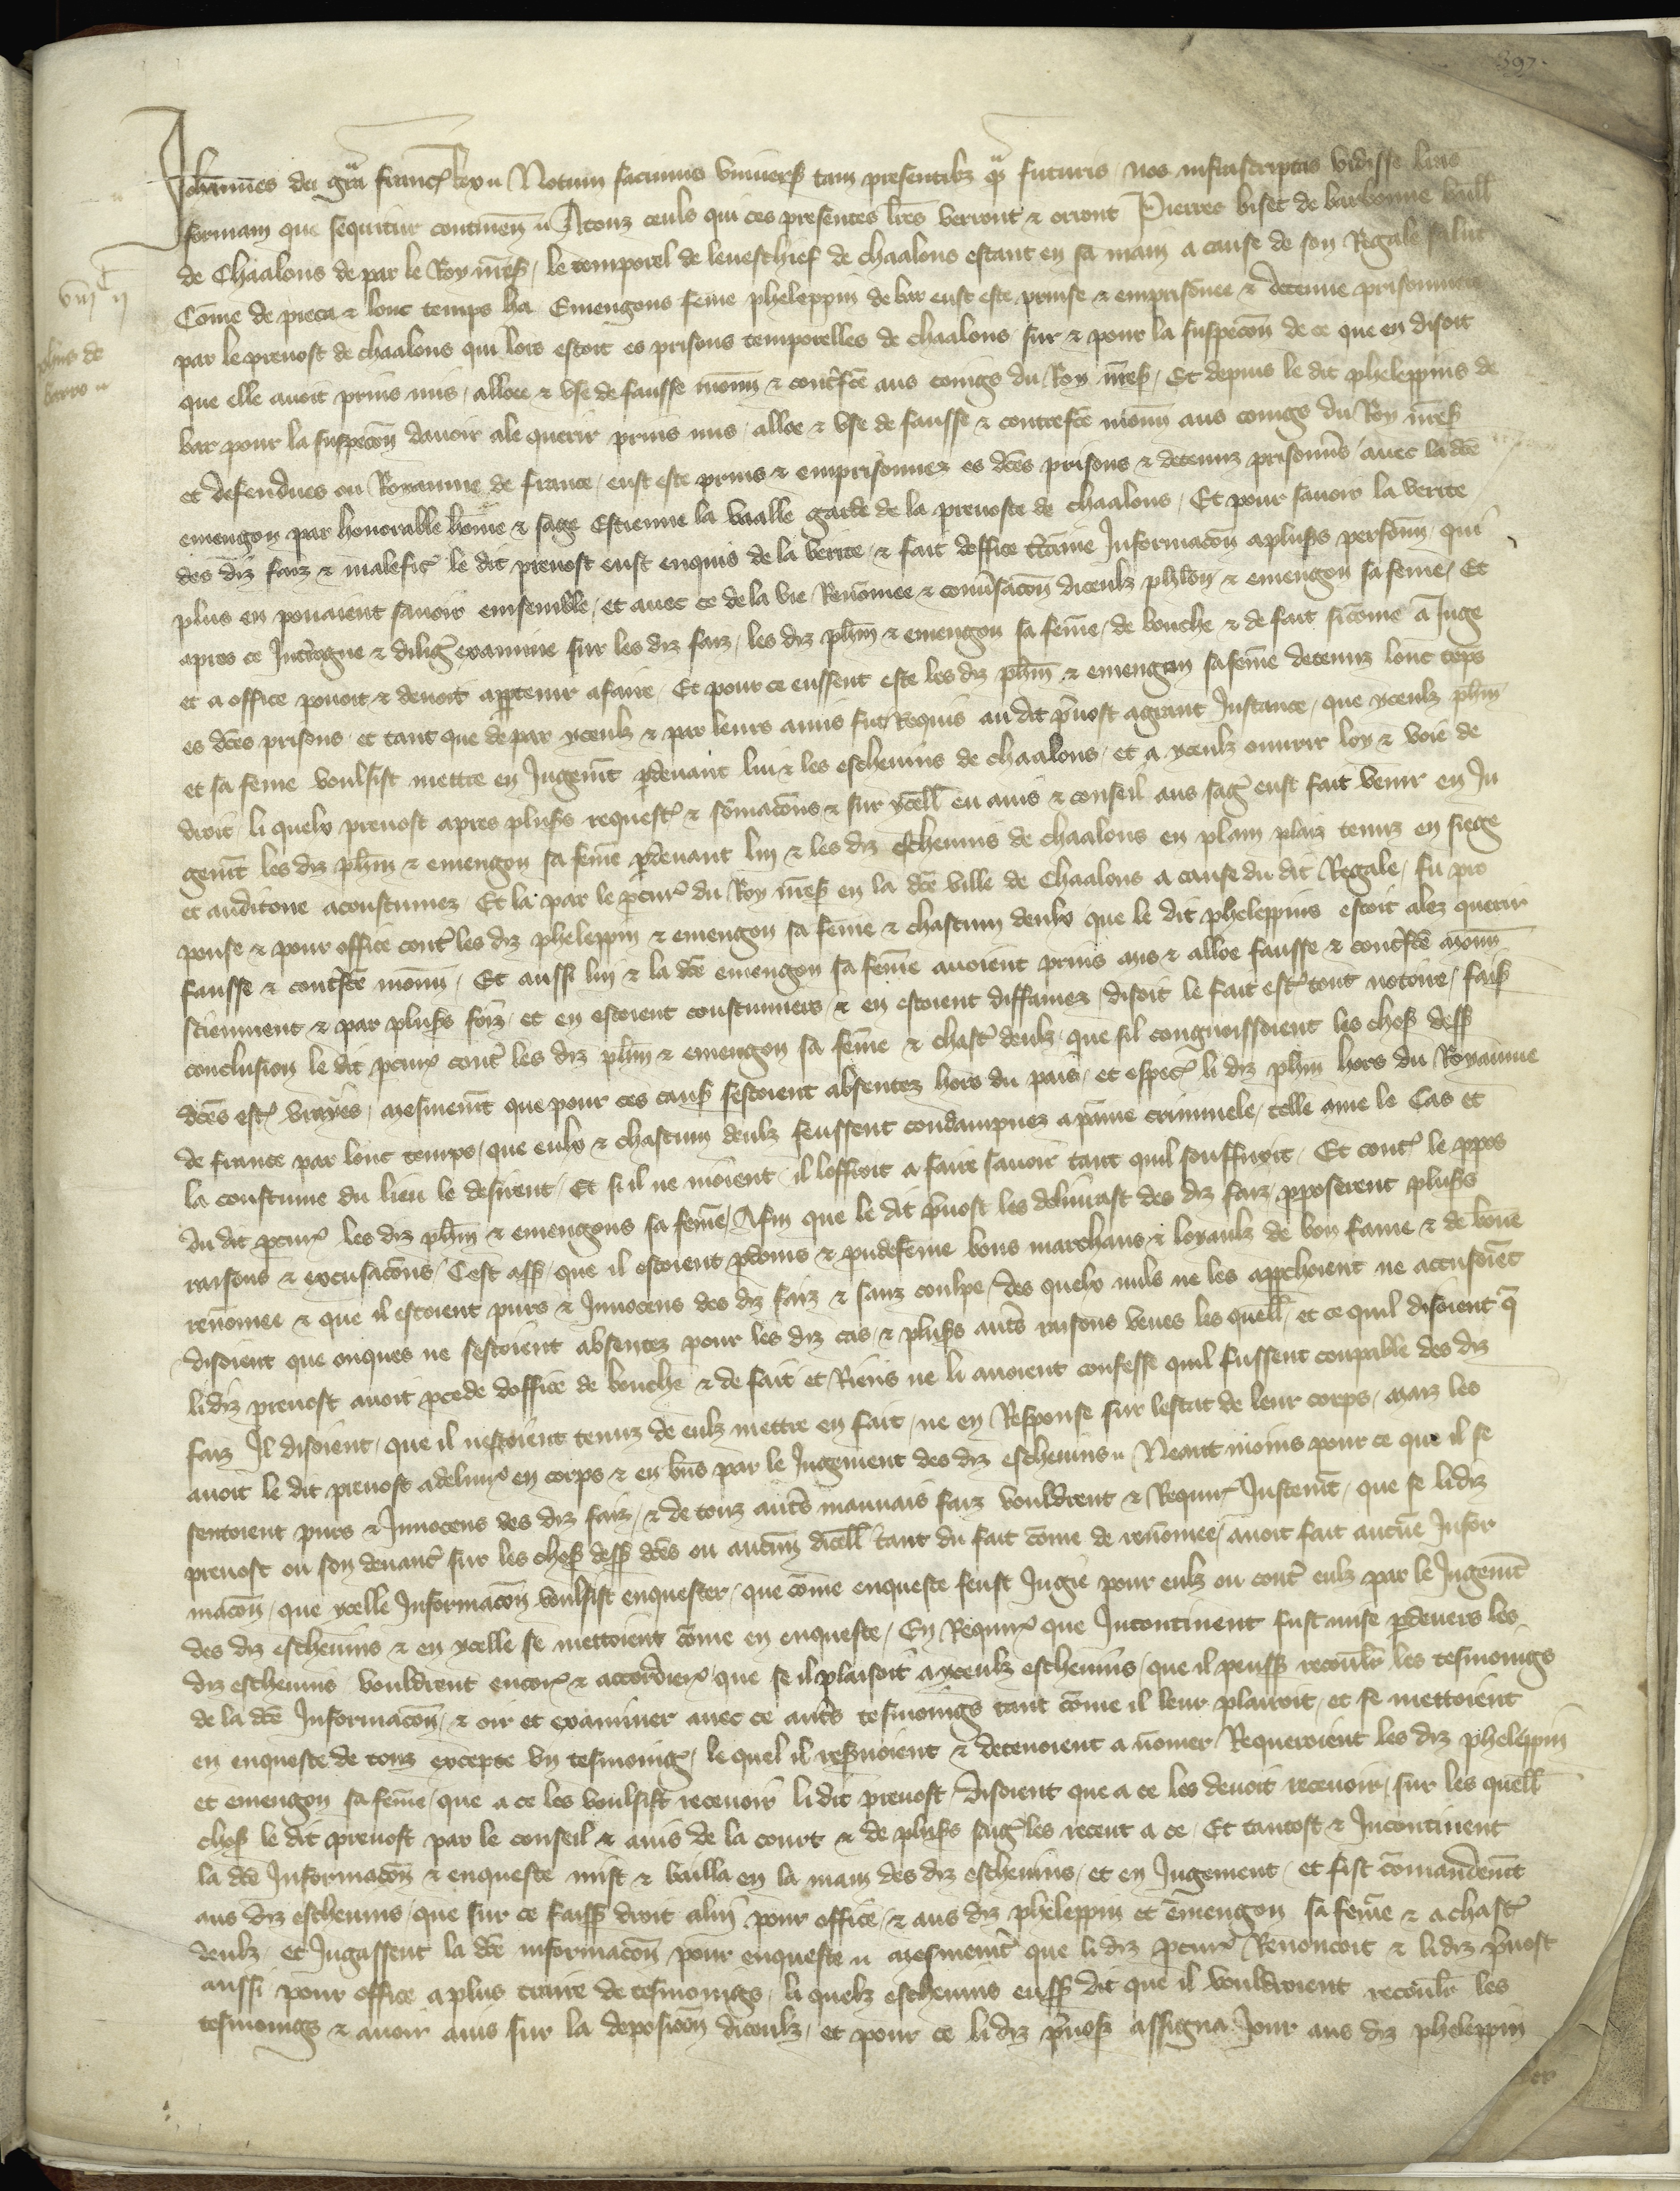 397.
Johannes dei gra Franc Rex Notum facimus univers tam presentibz q futuris nos infrascriptas vidisse lras
formam que sequitur continen A touz ceuls qui ces presentes lres verront & orront Pierres biset de barbonne baill
de Chaalons de par le Roy nres, le temporel de leveschief de chaalons estant en sa main a cause de son Regale salut
Come de pieca & lonc temps ha Emengons feme pheleppin de bar eust este prinse & emprisonee & detenue prisonniere
par le prevost de chaalons qui lors estoit es prisons temporelles de chaalons sur & pour la suspecon de ce que en disoit
que elle avoit prins mis, alloee & use de fausse monn & contrefte aus coings du Roy nres, Et depuis le dit pheleppins de
bar pour la suspecon davoir ale querir prins mis, alloe & use de fausse & contrefte monn aus coings du Roy nres
et defendues ou Royaume de france, eust este prins & emprisonnez es dces prisons & detenuz prisonns avec la dce
emengon par honorable home & sage Estienne la vaalle garde de la prevoste de chaalons, Et pour savoir la verite
des diz faiz & malefic le dit prevost eust enquis de la verite, & fait doffice certaine Informacon a pluss personn, qui
plus en povaient savoir ensemble, et avec ce de la vie Renomee & conversacon diceulz phlon & emengon sa feme, Et
apres ce Interrogue & dilig examine sur les diz faiz, les diz phlin & emengon sa feme, de bouche & de fait sicome a Juge
et a office povoit & devoit apptenir a faire, Et pour ce eussent este les diz phlin & emengon sa feme detenuz lonc teps
es dces prisons, et tant que de par yceulz & par leurs amis fut Requis au dit prvost a grant Instance, que yceulz phlin
et sa feme voulsist mettre en Jugemt pdevant lui & les eschevins de chaalons, et a yceulz ouvrir loy & voie de
droit, li quelx prevost apres pluss request & somacons & sur ycell eu avis & conseil aus sag eust fait venir en Ju
gemt les diz phlin & emengon sa feme pdevant luy & les diz eschevins de chaalons en plain plaiz tenuz en siege
et auditoire acoustumez, Et la par le pcur du Roy nres en la dce ville de Chaalons a cause du dit Regale, fu pro
pouse & pour office cont les diz pheleppin & emengon sa feme & chascun deulx que le dit pheleppins estoit alez querir
fausse & contrefte monn, Et aussi luy & la dce emengon sa feme avoient prins mis & alloe fausse & contrefte monn
sciemment & par pluss foiz, et en estoient coustumiers, & en estoient diffamez, disoit le fait est tout notoire, fais
conclusion le dit pcur cont les diz phlin & emengon sa feme & chast deulz, que sil congnoissoient les chos dess
dces est vrayes, mesmemt que pour ces caus sestoient absentez hors du pais, et espec li diz phlin hors du Royaume
de france par lonc temps, que eulx & chascun deulz feussent condampnez a paine criminele, telle come le Cas et
la coustume du lieu le desirent, Et sil ne nioient il loffroit a faire savoir tant quil souffiroit, Et cont le ppos
du dit pcur les diz phlin & emengons sa feme, Afin que le dit prvost les delivrast des diz faiz, pposerent pluss
raisons & excusacons, Cest ass, que il estoient pdoms & pudefeme bons marchans & loyaulz de bon fame & de bone
renomee & que il estoient purs & Innocens des diz faiz & sanz coulpe, des quelx nuls ne les approchoient ne accusoiet
disoient que onques ne sestoient absentez pour les diz cas, & pluss auts raisons veues les quell, et ce quil disoient q
li diz prevost avoit pcede doffice de bouche & de fait et Riens ne li avoient confesse quil fussent coupable des diz
faiz Il disoient, que il nestoient tenuz de eulz mettre en fait, ne en Response sur lestat de leur corps, maiz les
avoit le dit prevost a delivr en corps & en bns par le Jugement des diz eschevins Neant moins pour ce que il se
sentoient purs & Innocens des diz faiz, & de touz auts mauvais faiz vouldrent & Requir Justemt, que se li diz
prevost ou son devant sur les chos dess dces ou aucun dicell tant du fait come de renomee, avoit fait aucune Infor
macon, que ycelle Informacon voulsist enquester, que come enqueste feust Jugie pour eulz ou cont eulz par le Jugemt
des diz eschevins & en ycelle se mettoient come en enqueste, En Requir que Incontinent fust mise pdevers les
diz eschevins vouldrent encor & accorder que se il plaisoit a yceulz eschevins, que il peuss recoulr les tesmoings
de la dce Informacon, & oir et examiner avec ce auts tesmoings tant come il leur plairoit, et se mettoient
en enqueste de touz excepte un tesmoing, le quel il resrvoient & detenoient a nomer Requeroient les diz pheleppin
et emengon sa feme, que a ce les voulsist recevoir li dit prevost Disoient que a ce les devoit recevoir, sur les quell
chos le dit prevost par le conseil & avis de la court & de pluss sag les recent a ce, Et tantost & Incontinent
la dce Informacon & enqueste mist & bailla en la main des diz eschevins, et en Jugement, et fist comandemt
aus diz eschevins, que sur ce faiss droit a luy pour office, & aus diz pheleppin et emengon sa feme & a chast
deulz, et Jugassent la dce informacon pour enqueste mesmemt que li diz pcur Renoncoit & li diz prvost
aussi pour office a plus traire de tesmoings, li quelz eschevins euss dit que il vouldroient recoulr les
tesmoings & avoir avis sur la deposicon diceulz, et pour ce li diz prvos assigna Jour aus diz pheleppin
viij C ij
phlins de
barro